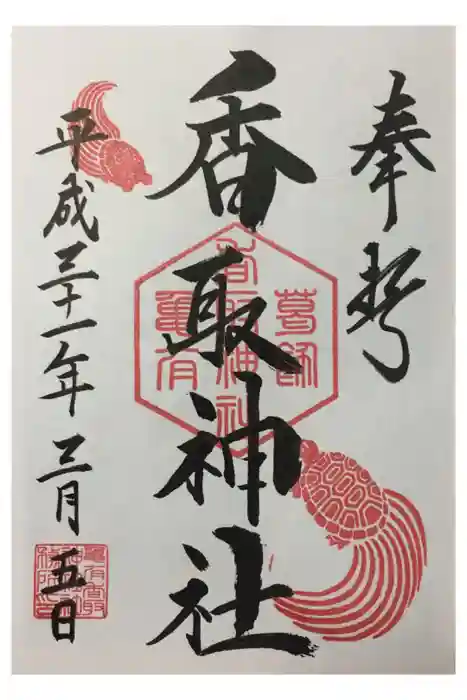 奉拝
香取神社
葛飾
香取神社
亀有
平成三十一年三月
五日